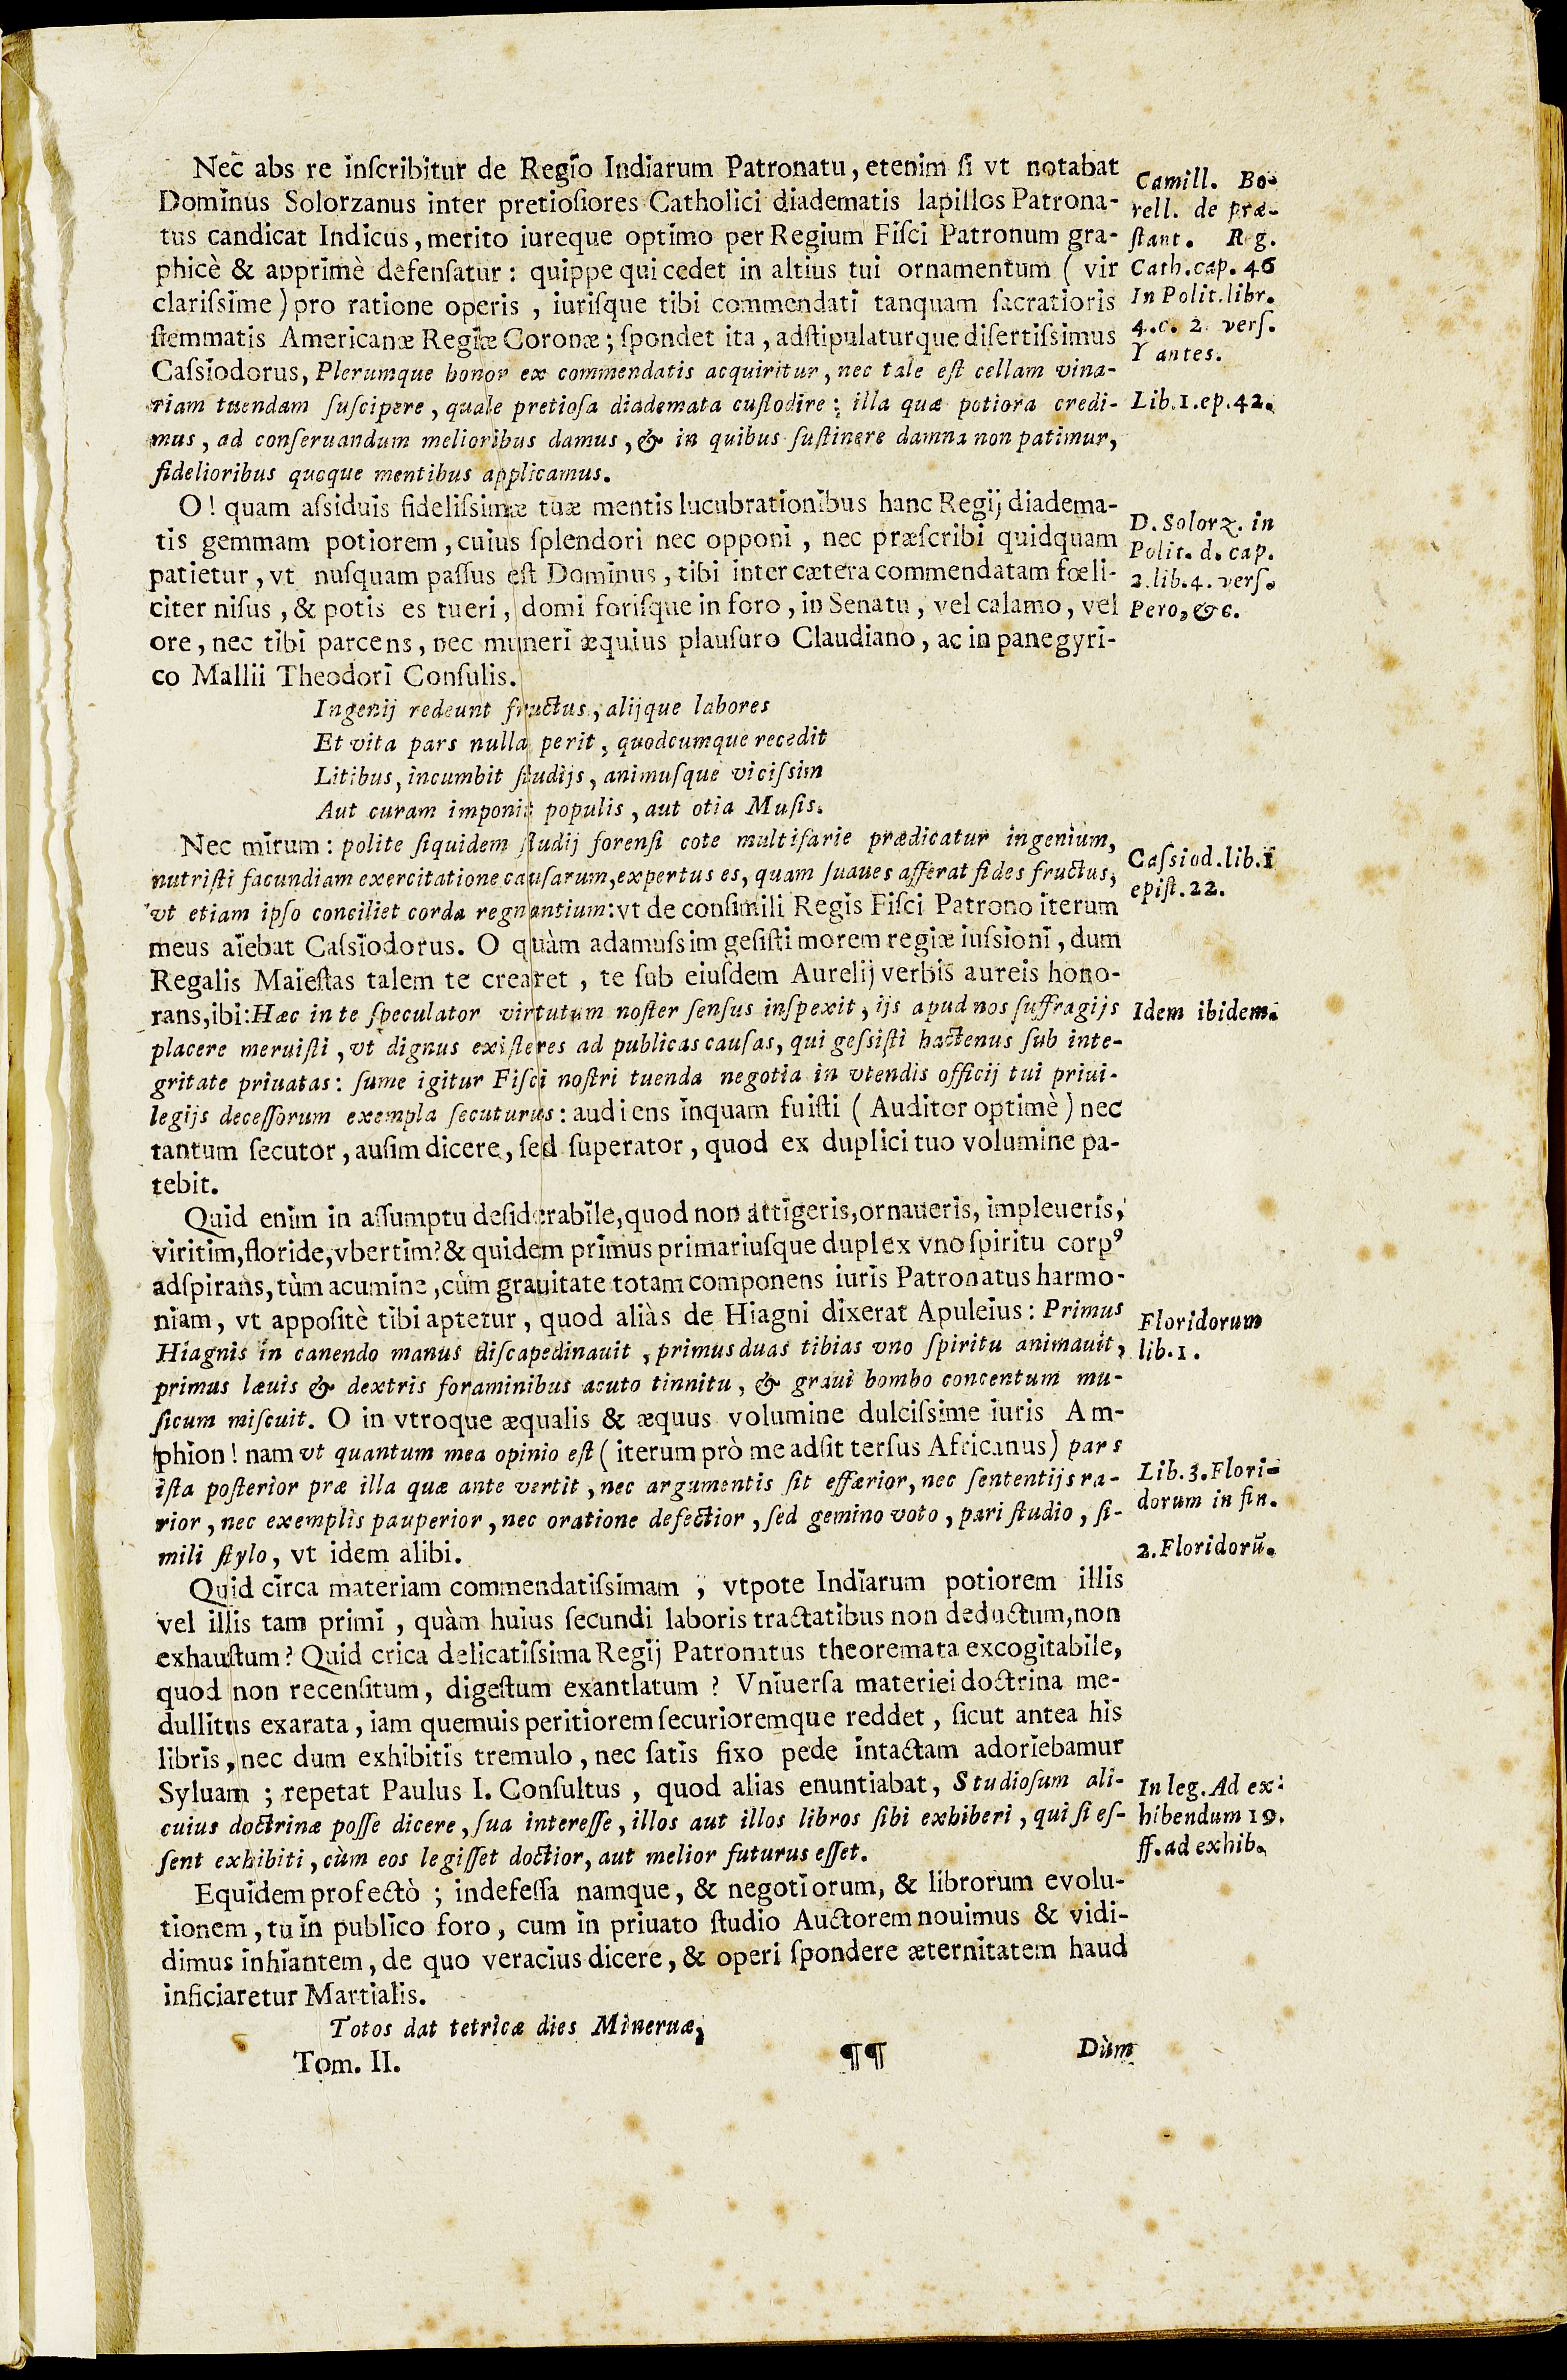 Nec abs re inſcribitur de Regio Indiarum Patronatu, etenim ſi vt notabat
Dominus Solorzanus inter pretioſiores Catholici diadematis lapillos Patrona-
tus candicat Indicus, merito iureque optimo per Regium Fiſci Patronum gra-
phicè & apprimè defenſatur: quippe qui cedet in altius tui ornamentum (vir
clariſsime) pro ratione operis, iuriſque tibi commendati tanquam ſacratioris
ſtemmatis Americanæ Regiæ Coronæ; ſpondet ita, adſtipulaturque diſertiſsimus
Caſsiodorus, Plerumque honor ex commendatis acquiritur, nec tale eſt cellam vina-
riam tuendam ſuſcipere, quale pretioſa diademata cuſtodire: illa quæ potiora credi-
mus, ad conſeruandum melioribus damus, & in quibus ſuſtinere damna non patimur,
fidelioribus quoque mentibus applicamus.
Camill. Bo-
rell. de præ-
ſtant. Reg.
Cath. cap. 46
In Polit. libr.
4. c. 2. verſ.
Y antes.
Lib. 1. ep. 42.
O! quam aſsiduis fideliſsimæ tuæ mentis lucubrationibus hanc Regij diadema-
tis gemmam potiorem, cuius ſplendori nec opponi, nec præſcribi quidquam
patietur, vt nuſquam paſſus eſt Dominus, tibi inter cætera commendatam fœli-
citer niſus, & potis es tueri, domi foriſque in foro, in Senatu, vel calamo, vel
ore, nec tibi parcens, nec muneri æquius plauſuro Claudiano, ac in panegyri-
co Mallii Theodori Conſulis.
D. Solorz. in
Polit. d. cap.
2. lib. 4. verſ.
Pero, &c.
Ingenij redeunt fructus, alijque labores
Et vita pars nulla perit, quodcumque recedit
Litibus, incumbit ſtudijs, animuſque viciſsim
Aut curam imponit populis, aut otia Muſis.
Nec mirum: polite ſiquidem ſtudij forenſi cote multifarie prædicatur ingenium,
nutriſti facundiam exercitatione cauſarum, expertus es, quam ſuaues afferat fides fructus,
vt etiam ipſo conciliet corda regnantium: vt de conſimili Regis Fiſci Patrono iterum
meus aiebat Caſsiodorus. O quàm adamuſsim geſiſti morem regiæ iuſsioni, dum
Regalis Maieſtas talem te crearet, te ſub eiuſdem Aurelij verbis aureis hono-
rans, ibi: Hæc in te ſpeculator virtutum noſter ſenſus inſpexit, ijs apud nos ſuffragijs
placere meruiſti, vt dignus exiſteres ad publicas cauſas, qui geſsiſti hactenus ſub inte-
gritate priuatas: ſume igitur Fiſci noſtri tuenda negotia in vtendis officij tui priui-
legijs deceſſorum exempla ſecuturus: audiens inquam fuiſti (Auditor optimè) nec
tantum ſecutor, auſim dicere, ſed ſuperator, quod ex duplici tuo volumine pa-
tebit.
Caſsiod. lib. 1
epiſt. 22.
Idem ibidem.
Quid enim in aſſumptu deſiderabile, quod non attigeris, ornaueris, impleueris,
viritim, floride, vbertim? & quidem primus primariuſque duplex vno ſpiritu corpꝰ
adſpirans, tùm acumine, cùm grauitate totam componens iuris Patronatus harmo-
niam, vt appoſitè tibi aptetur, quod aliàs de Hiagni dixerat Apuleius: Primus
Hiagnis in canendo manus diſcapedinauit, primus duas tibias vno ſpiritu animauit,
primus læuis & dextris foraminibus acuto tinnitu, & graui bombo concentum mu-
ſicum miſcuit. O in vtroque æqualis & æquus volumine dulciſsime iuris Am-
phion! nam vt quantum mea opinio eſt (iterum prò me adſit terſus Africanus) pars
iſta poſterior præ illa quæ ante vertit, nec argumentis ſit effærior, nec ſententijs ra-
rior, nec exemplis pauperior, nec oratione defectior, ſed gemino voto, pari ſtudio, ſi-
mili ſtylo, vt idem alibi.
Floridorum
lib. 1.
Lib. 3. Flori-
dorum in fin.
2. Floridorũ.
Quid circa materiam commendatiſsimam, vtpote Indiarum potiorem illis
vel illis tam primi, quàm huius ſecundi laboris tractatibus non deductum, non
exhauſtum? Quid crica delicatiſsima Regij Patronatus theoremata excogitabile,
quod non recenſitum, digeſtum exantlatum? Vniuerſa materiei doctrina me-
dullitus exarata, iam quemuis peritiorem ſecurioremque reddet, ſicut antea his
libris, nec dum exhibitis tremulo, nec ſatis fixo pede intactam adoriebamur
Syluam; repetat Paulus I. Conſultus, quod alias enuntiabat, Studioſum ali-
cuius doctrinæ poſſe dicere, ſua intereſſe, illos aut illos libros ſibi exhiberi, qui ſi eſ-
ſent exhibiti, cùm eos legiſſet doctior, aut melior futurus eſſet.
In leg. Ad ex-
hibendum 19.
ff. ad exhib.
Equidem profectò; indefeſſa namque, & negotiorum, & librorum evolu-
tionem, tu in publico foro, cum in priuato ſtudio Auctorem nouimus & vidi-
dimus inhiantem, de quo veracius dicere, & operi ſpondere æternitatem haud
inficiaretur Martialis.
Totos dat tetricæ dies Mineruæ,
Tom. II. ¶¶ Dùm